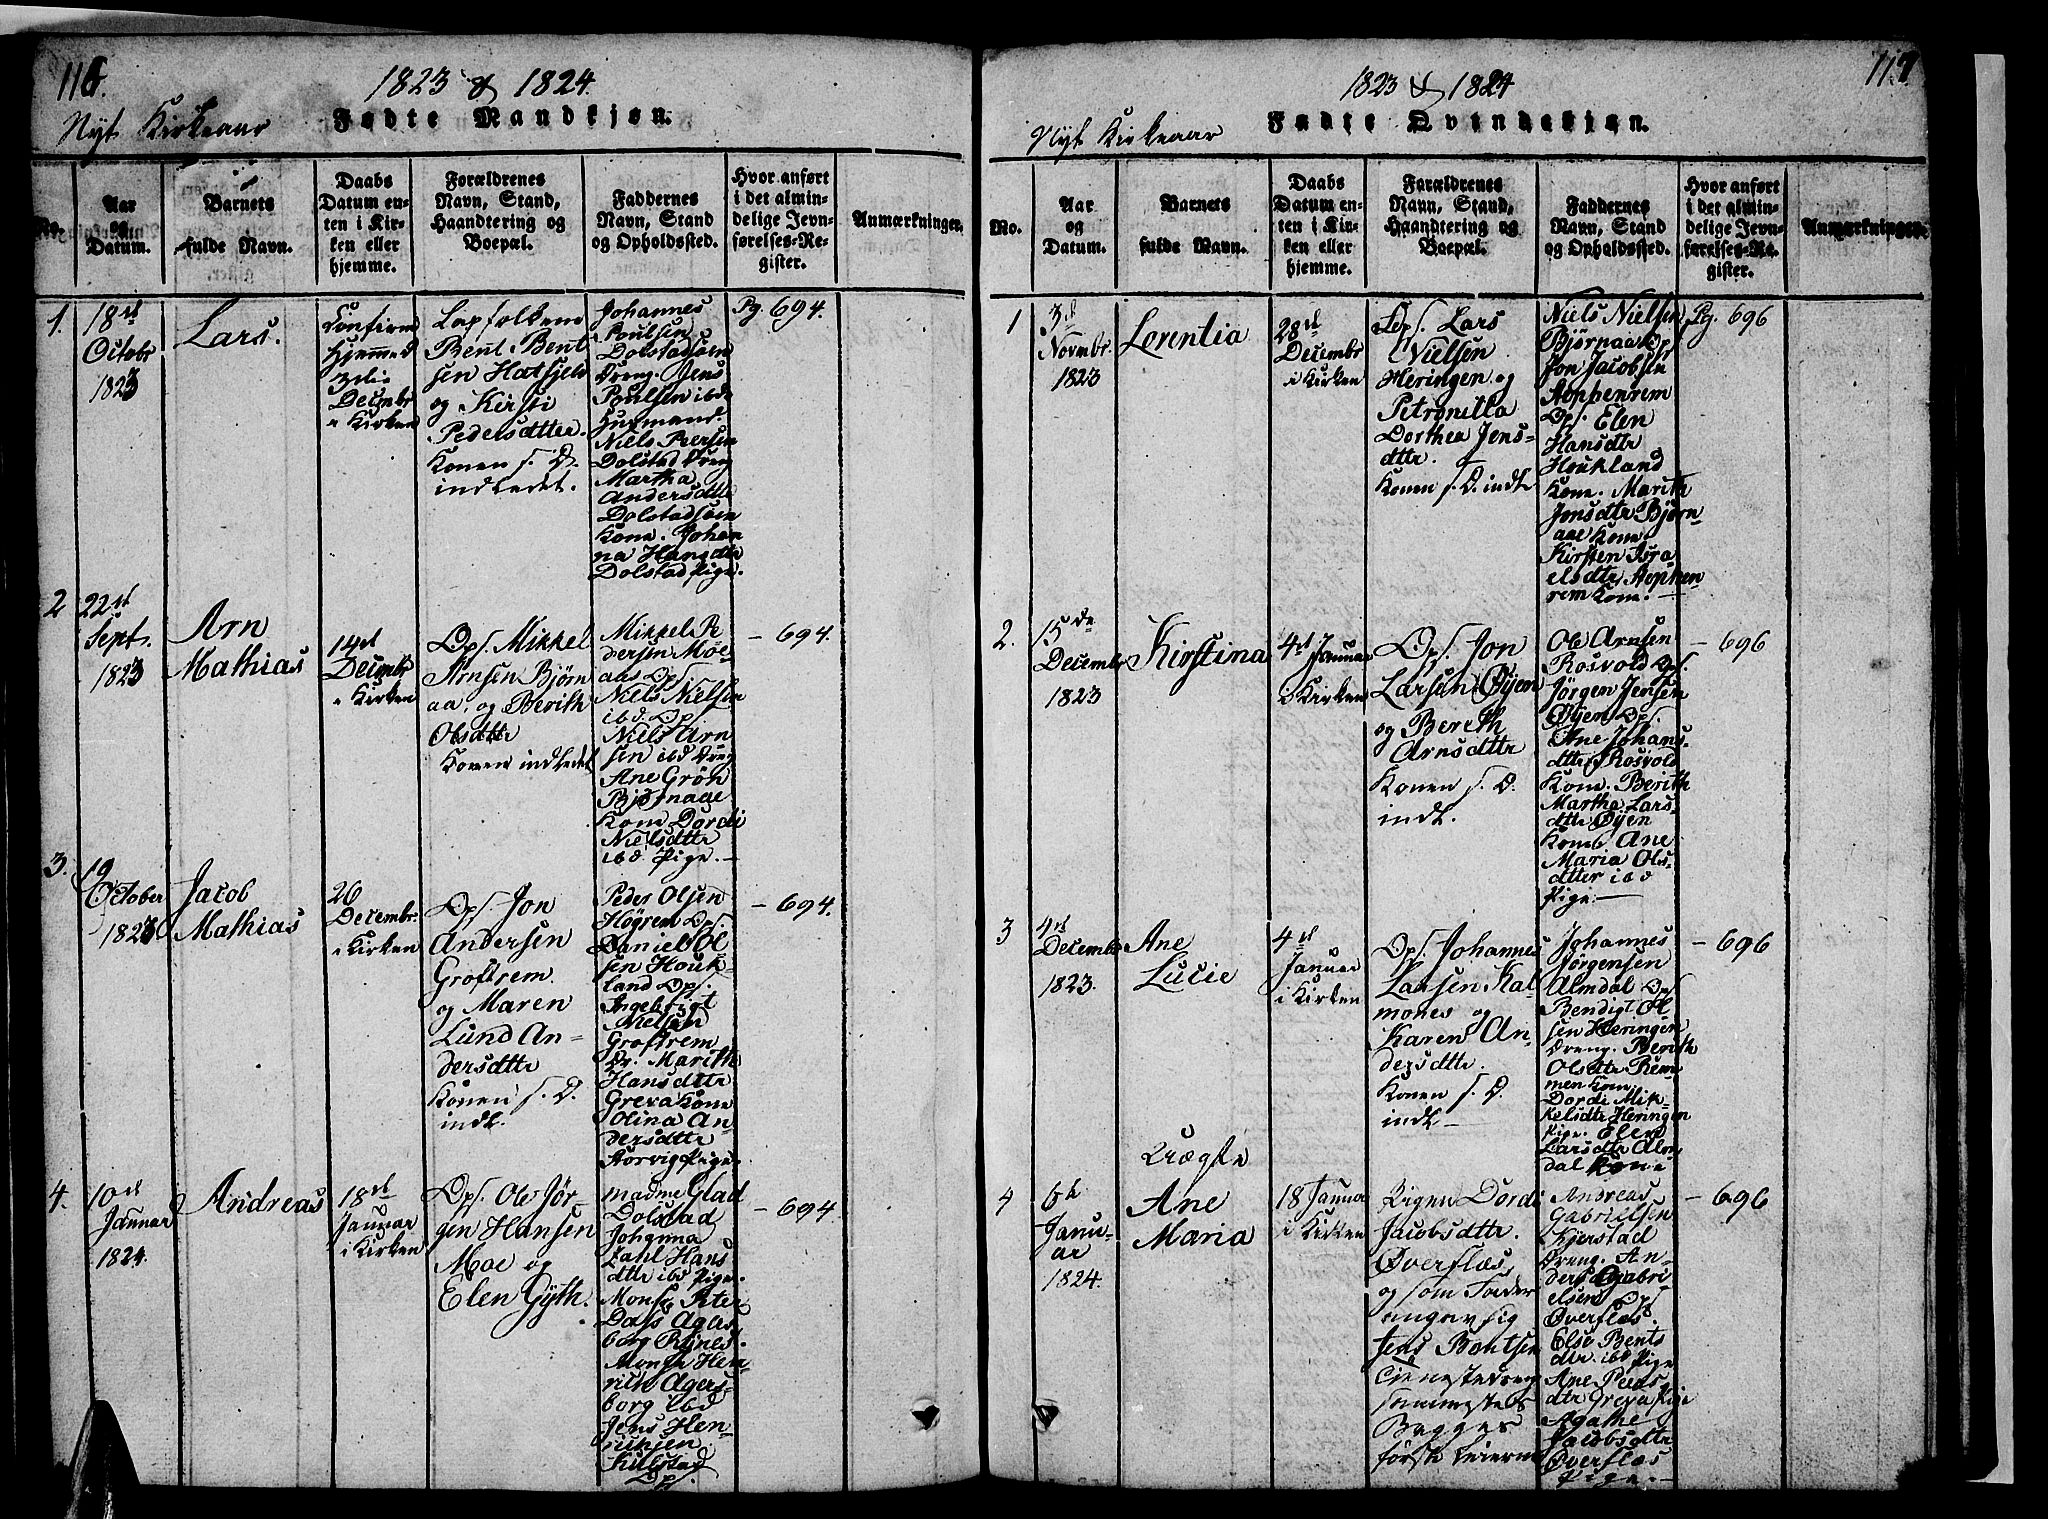 116.
1823 & 1824.
Nyt Kirkeaar
Fødte Mandkjøn.
No.
Aar og Datum.
Barnets fulde Navn.
Daabs Datum enten i Kirken eller hjemme.
Forældrenes Navn, Stand, Haandtering og Boepæl.
Faddernes Navn, Stand og Opholdssted.
Hvor anført i det almindelige Jevnførelses-Register.
Anmærkninger.
1.
18de
Octobr
1823
Lars.
Confirm
Hjemmed
Decembr
i Kirken
Lapfolkene
Bent Bent
sen Hatfjeld
og Kirsti
Pedersdtter.
Konen f. D.
indledet.
Johannes
Poulsen
Dolstadsøen
Dreng. Jens
Poulsen ibd
Huusmand.
Niels Peersen
Dolstad Dreng
Martha
Andersdttr
Dolstadsøen
Kone. Johan
na Hansdttr
Dolstad Pige.
Pg. 694.
2
22de
Sept.
1823
Arn
Mathias
14de
Decembr
i Kirken
Dpf. Mikkel
Arnsen Bjørn
aa, og Berith
Olsdttr
Konen indledet
Mikkel Pe
dersen Moe
aas Dpf
Niels Nielsen
ibd. Dpf.
Niels Arn
sen ibd Dreng
Ane Grøn
Bjørnaae
Kone Dordi
Nielsdttr
ibd. Pige.
— 694.
3.
19
October
1823
Jacob
Mathias
26
Decembr.
i Kirken
Dpf. Jon
Andersen
Groftrem.
og Maren
Lund An=
dersdttr
Konen f. D.
indl.
Peder Olsen
Høgrem Dpf.
Daniel Ol
sen Houk=
land Dpf.
Ingebrigt
Nielsen
Groftrem
Dr. Marith
Hansdttr
Greva Kone
Olina An=
dersdttr
Aorvig Pige.
— 694.
4.
10de
Januar
1824.
Andreas
18de
Januar
i Kirken
Dpf. Ole Jør
gen Hansen
Moe og
Elen Gÿth.
Madme Glad
Dolstad
Johanna
Zahl Hans
dttr ibd Pige.
Monsr. Peter
Dass Agers
borg Rÿnes.
Monsr Hen=
rich Agers=
borg ibd
Jens Hen=
richsen
Kulstad
Dpf.
— 694.
117.
1823 & 1824
Nyt Kirkeaar
Fødte Qvindekjøn.
No.
Aar og Datum.
Barnets fulde Navn.
Daabs Datum enten i Kirken eller hjemme.
Forældrenes Navn, Stand, Haandtering og Boepæl.
Faddernes Navn, Stand og Opholdssted.
Hvor anført i det almindelige Jevnførelses-Register.
Anmærkninger.
1
3de
Novmbr.
1823
Lorentia
28de
Decembr
i Kirken
Dpf. Lars
Nielsen
Heringen og
Petronella
Dorthea Jens=
dttr.
Konen f. D. indl
Niels Nielsen
Bjørnaa Dpf
Jon Jacobsen
Aoppenrem
Dpf. Elen
Hansdtr
Houkland
Kone. Marith
Jonsdtr Bjørn
aae Kone
Kirsten Isra
elsdtr Aoppen
rem Kone.
Pg. 696
2.
15de
Decembr
1823
Kirstina
4de Januar
i Kirken
Dpf. Jon
Larsen Øÿen
og Bereth
Arnsdttr
Konen f. D.
indl.
Ole Arnsen
Rosvold Dpf.
Jørgen Jensen
Øÿen Dpf.
Ane Johans=
dttr Rosvold
Kone. Berith
Martha Lars
dttr Øÿen
Kone Ane
Maria Ols
dtter ibd
Pige.
— 696
3
4de
Decembr
1823.
Ane
Lucie
4de
Januar
i Kirken
Dpf. Johannes
Larsen Kal
mones og
Karen An=
dersdttr.
Konen f. D.
indl
Johannes
Jørgensen
Almdal Dpf
Bendigt Ol
sen Heringen
Dreng. Berith
Olsdtr Rem
men Kone.
Dordi Mik=
kelsdtr Heringen
Pige. Elen
Larsdtr Alm
dal Kone
— 696
4
6te
Janu=
ar
1824.
Uægte
Ane
Maria
18 Januar
i Kirken
Pigen Dordi
Jacobsdttr.
Øverflæs
og som Fader
angav sig
Jens Bentsen
Tjenestedreng
Bagges
første Leierm
Andreas
Gabrielsen
Kjerstad
Dreng. An=
ders Gabri
elsen Dpf
Øverflæs.
Else Bents
dtr. ibd Pige
Ane Peers
dtr Greva Pige
Agathe
Jacobsdttr
Øverflæs
Pige.
— 696